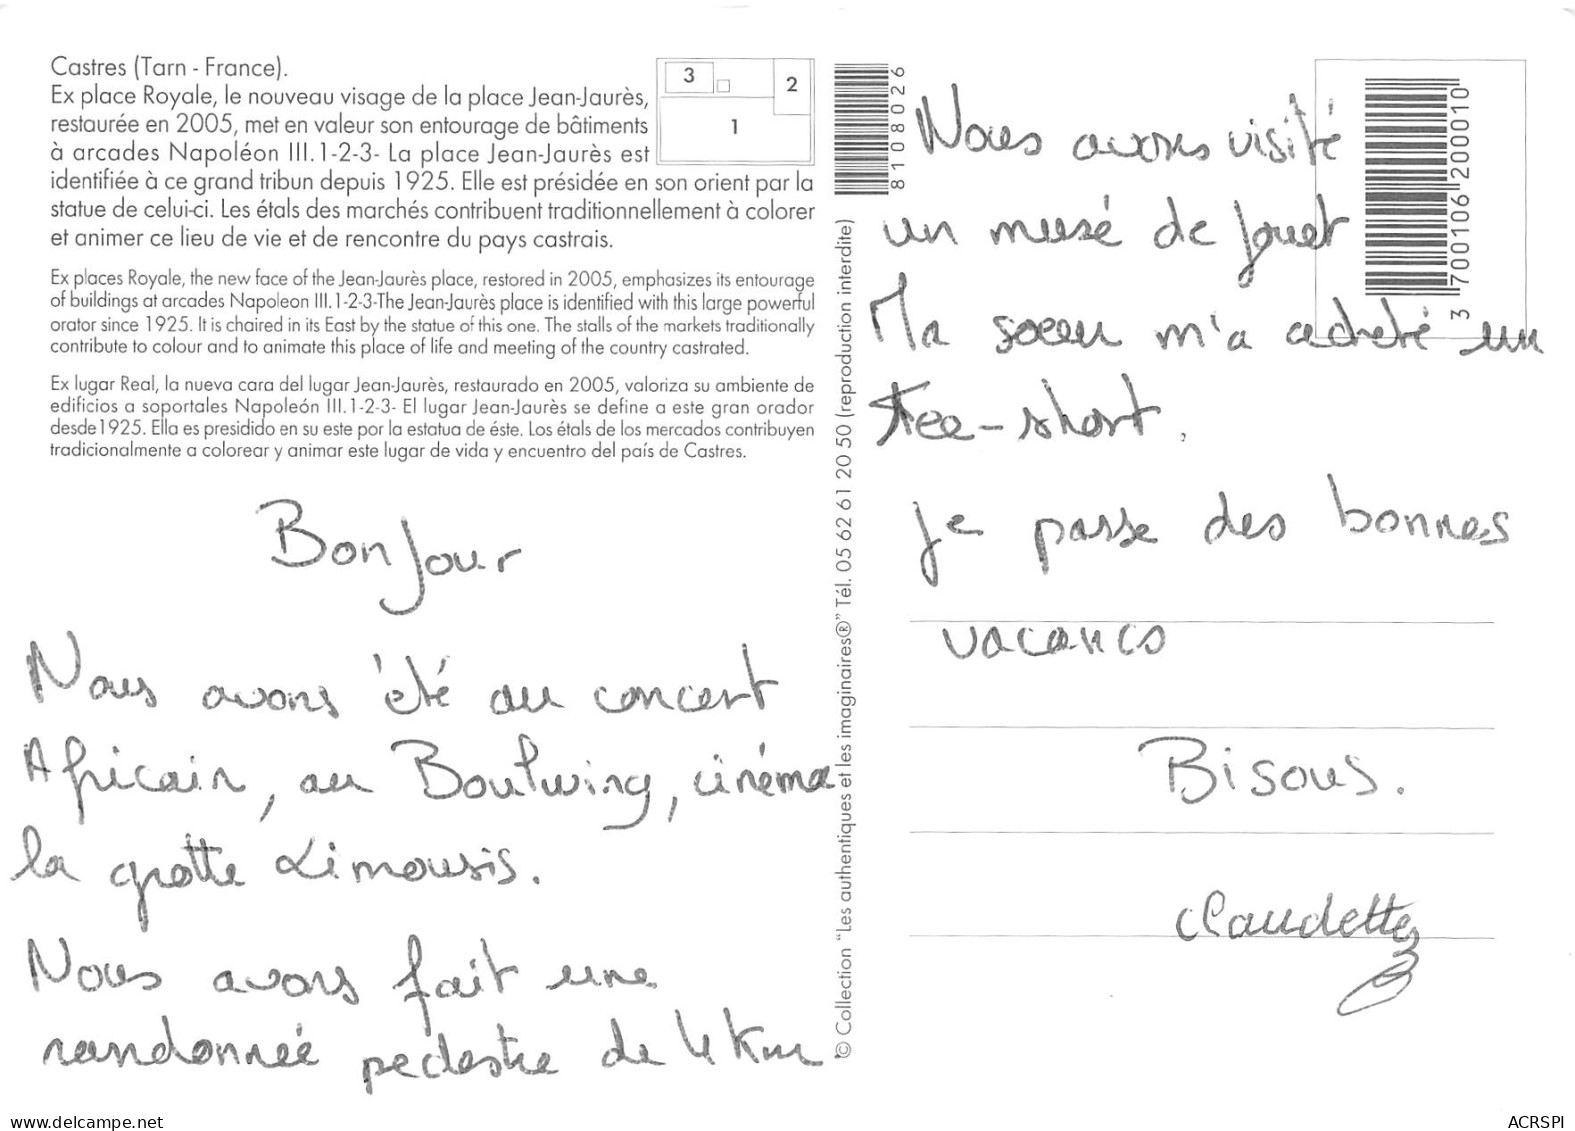 Castres (Tarn - France).
Ex place Royale, le nouveau visage de la place Jean-Jaurès,
restaurée en 2005, met en valeur son entourage de bâtiments
à arcades Napoléon III.1-2-3- La place Jean-Jaurès est
identifiée à ce grand tribun depuis 1925. Elle est présidée en son orient par la
statue de celui-ci. Les étals des marchés contribuent traditionnellement à colorer
et animer ce lieu de vie et de rencontre du pays castrais.
Ex places Royale, the new face of the Jean-Jaurès place, restored in 2005, emphasizes its entourage
of buildings at arcades Napoleon III.1-2-3-The Jean-Jaurès place is identified with this large powerful
orator since 1925. It is chaired in its East by the statue of this one. The stalls of the markets traditionally
contribute to colour and to animate this place of life and meeting of the country castrated.
Ex lugar Real, la nueva cara del lugar Jean-Jaurès, restaurado en 2005, valoriza su ambiente de
edificios a soportales Napoleón III.1-2-3- El lugar Jean-Jaurès se define a este gran orador
desde1925. Ella es presidido en su este por la estatua de éste. Los étals de los mercados contribuyen
tradicionalmente a colorear y animar este lugar de vida y encuentro del país de Castres.
3
2
1
Bonjour
Nous avons été au concert
Africain, au Boulwing, cinéma
la grotte Limousis.
Nous avons fait une
randonnée pedestre de 4 Km
© Collection "Les authentiques et les imaginaires®" Tél. 05 62 61 20 50 (reproduction interdite)
81108026
3 700106 200010
Nous avons visité
un musé de jouet
Ma soeur m'a acheté un
tee-short.
Je passe des bonnes
vacancs
Bisous.
Claudette
www.delcampe.net
ACRSPI